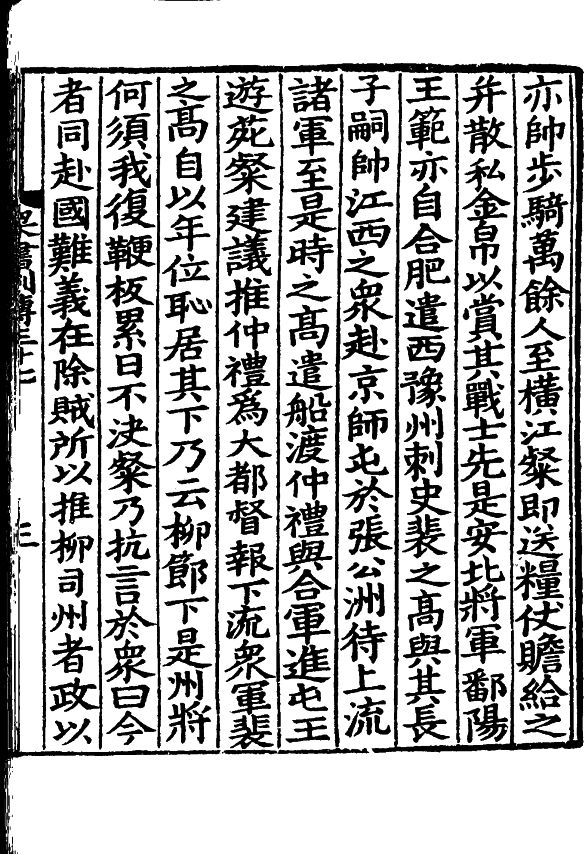 亦帥步騎萬餘人至橫江粲即送糧仗贍給之
并散私金帛以賞其戰士先是安北將軍鄱陽
王範亦自合肥遣西豫州刺史裴之高與其長
子嗣帥江西之衆赴京師屯於張公洲待上流
諸軍至是時之高遣船渡仲禮與合軍進屯王
遊苑粲建議推仲禮爲大都督報下流衆軍裴
之高自以年位恥居其下乃云柳節下是州將
何須我復鞭板累日不決粲乃抗言於衆曰今
者同赴國難義在除賊所以推柳司州者政以